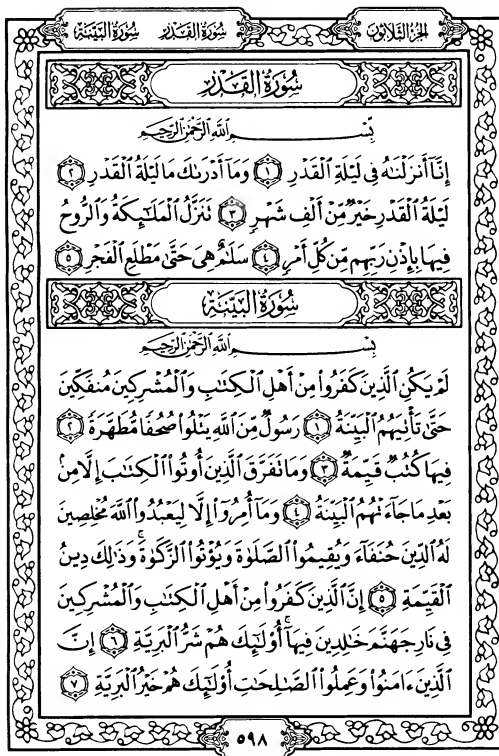 الجزء الثلاثون سورة القدر سورة البينة
سُورَةُ القَدْرِ
بِسْمِ اللَّهِ الرَّحْمَٰنِ الرَّحِيمِ
إِنَّا أَنزَلْنَٰهُ فِى لَيْلَةِ ٱلْقَدْرِ ١ وَمَآ أَدْرَىٰكَ مَا لَيْلَةُ ٱلْقَدْرِ ٢
لَيْلَةُ ٱلْقَدْرِ خَيْرٌ مِّنْ أَلْفِ شَهْرٍ ٣ تَنَزَّلُ ٱلْمَلَٰٓئِكَةُ وَٱلرُّوحُ
فِيهَا بِإِذْنِ رَبِّهِم مِّن كُلِّ أَمْرٍ ٤ سَلَٰمٌ هِىَ حَتَّىٰ مَطْلَعِ ٱلْفَجْرِ ٥
سُورَةُ البَيِّنَةِ
بِسْمِ اللَّهِ الرَّحْمَٰنِ الرَّحِيمِ
لَمْ يَكُنِ ٱلَّذِينَ كَفَرُوا۟ مِنْ أَهْلِ ٱلْكِتَٰبِ وَٱلْمُشْرِكِينَ مُنفَكِّينَ
حَتَّىٰ تَأْتِيَهُمُ ٱلْبَيِّنَةُ ١ رَسُولٌ مِّنَ ٱللَّهِ يَتْلُوا۟ صُحُفًا مُّطَهَّرَةً ٢
فِيهَا كُتُبٌ قَيِّمَةٌ ٣ وَمَا تَفَرَّقَ ٱلَّذِينَ أُوتُوا۟ ٱلْكِتَٰبَ إِلَّا مِنۢ
بَعْدِ مَا جَآءَتْهُمُ ٱلْبَيِّنَةُ ٤ وَمَآ أُمِرُوٓا۟ إِلَّا لِيَعْبُدُوا۟ ٱللَّهَ مُخْلِصِينَ
لَهُ ٱلدِّينَ حُنَفَآءَ وَيُقِيمُوا۟ ٱلصَّلَوٰةَ وَيُؤْتُوا۟ ٱلزَّكَوٰةَ ۚ وَذَٰلِكَ دِينُ
ٱلْقَيِّمَةِ ٥ إِنَّ ٱلَّذِينَ كَفَرُوا۟ مِنْ أَهْلِ ٱلْكِتَٰبِ وَٱلْمُشْرِكِينَ
فِى نَارِ جَهَنَّمَ خَٰلِدِينَ فِيهَآ ۚ أُو۟لَٰٓئِكَ هُمْ شَرُّ ٱلْبَرِيَّةِ ٦ إِنَّ
ٱلَّذِينَ ءَامَنُوا۟ وَعَمِلُوا۟ ٱلصَّٰلِحَٰتِ أُو۟لَٰٓئِكَ هُمْ خَيْرُ ٱلْبَرِيَّةِ ٧
٥٩٨